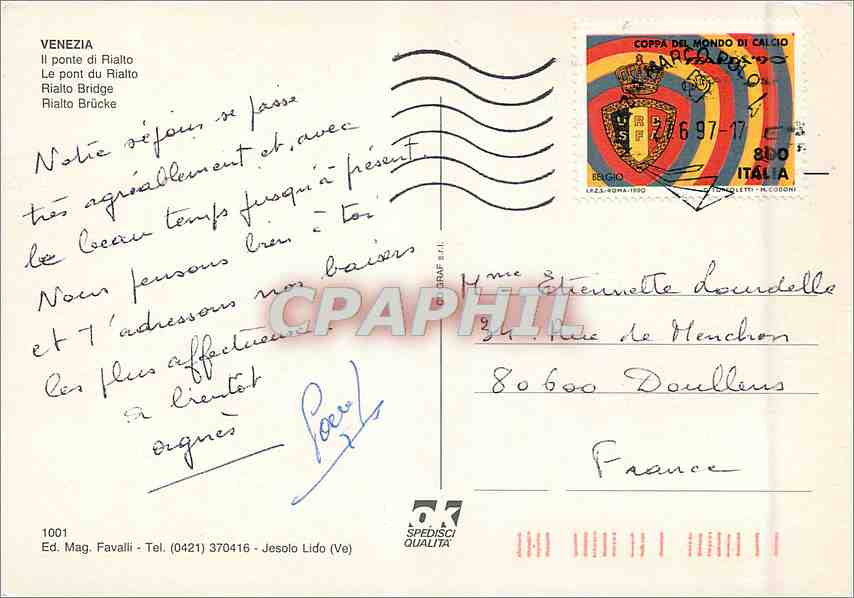 VENEZIA
Il ponte di Rialto
Le pont du Rialto
Rialto Bridge
Rialto Brücke
Notre séjour se passe
très agréablement et, avec
le beau temps jusqu'à présent.
Nous pensons bien à toi
et t'adressons nos baisers
les plus affectueux.
à bientôt
agnès
1001
Ed. Mag. Favalli - Tel. (0421) 370416 - Jesolo Lido (Ve)
GRAF s.r.l.
OK
SPEDISCI
QUALITA'
COPPA DEL MONDO DI CALCIO
MARCO POLO
27 6 97-17
BELGIO
800
ITALIA
I.P.Z.S.-ROMA-1990
M. CODONI
Mme Etiennette Lourdelle
34. Rue de Menchon
80600 Doullens
France
CPAPHIL